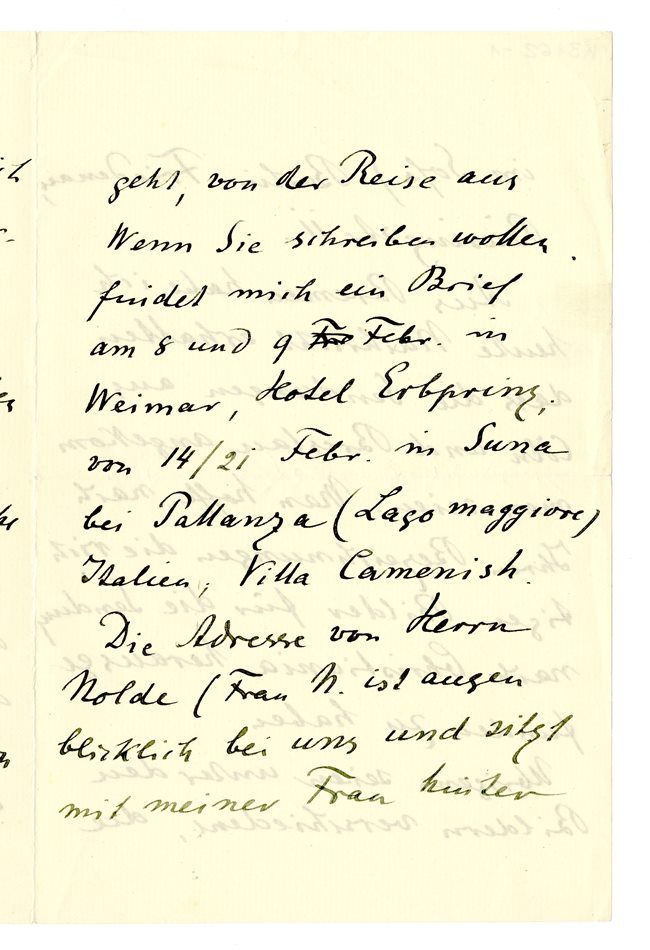 geht, von der Reise aus
Wenn Sie schreiben wollen.
findet mich ein Brief
am 8 und 9 Fr Febr. in
Weimar, Hotel Erbprinz,
von 14/21 Febr. in Suna
bei Pallanza (Lago maggiore)
Italien, Villa Camenish.
Die Adresse von Herrn
Nolde (Frau N. ist augen
blicklich bei uns und sitzt
mit meiner Frau hinter